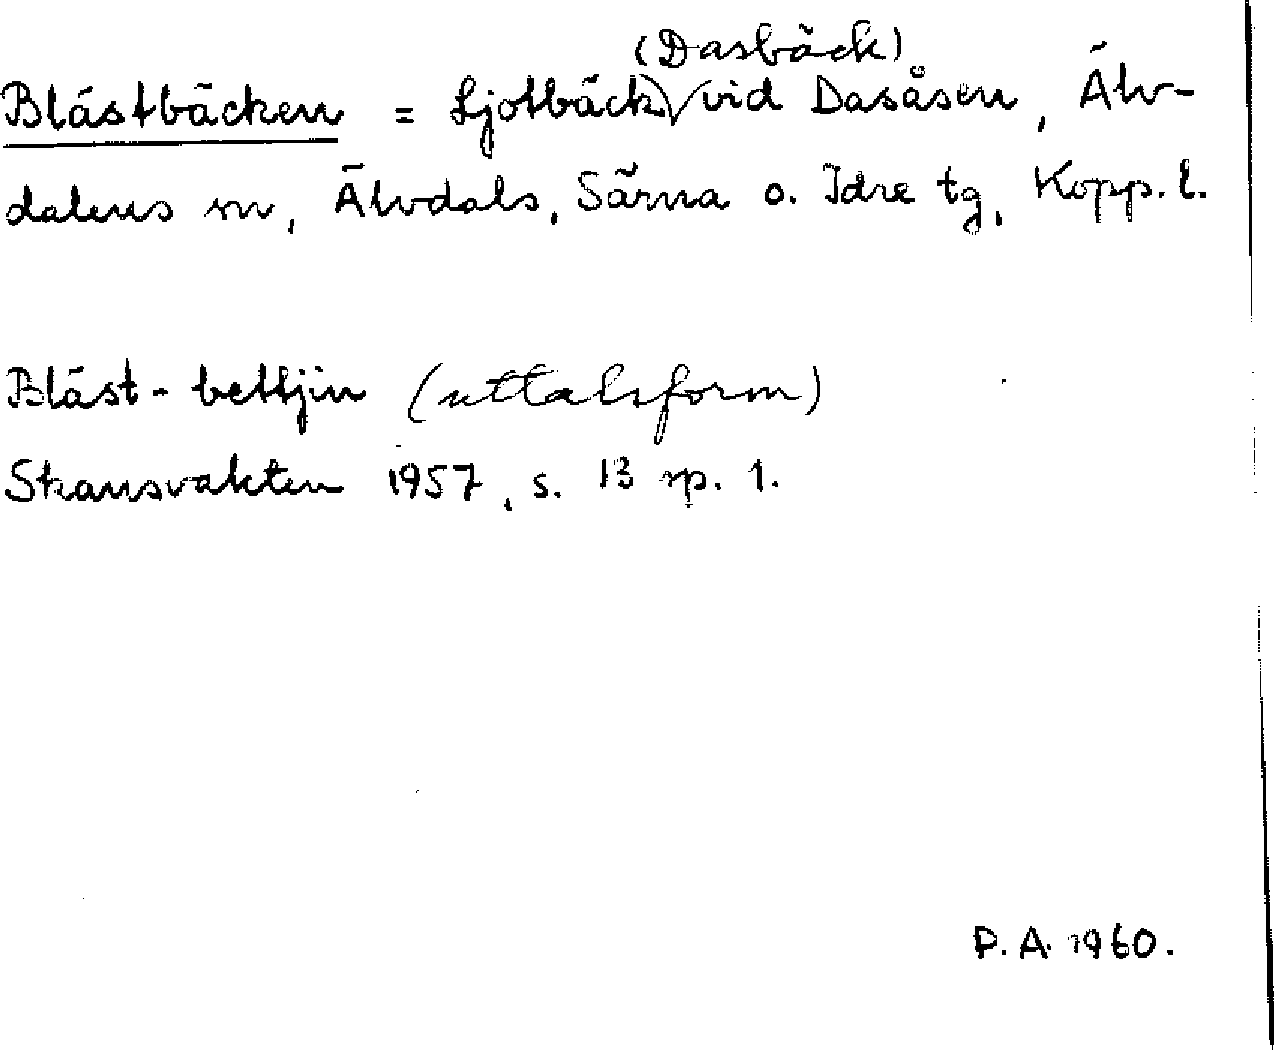 (Dasbäck)
Blástbäcken = Ljotbäck vid Dasåsen, Älv-
dalens sn, Älvdals, Särna o. Idre tg, Kopp. l.
Blást-bettjin (uttalsform)
Skansvakten 1957, s. 13 sp. 1.
P.A. 1960.